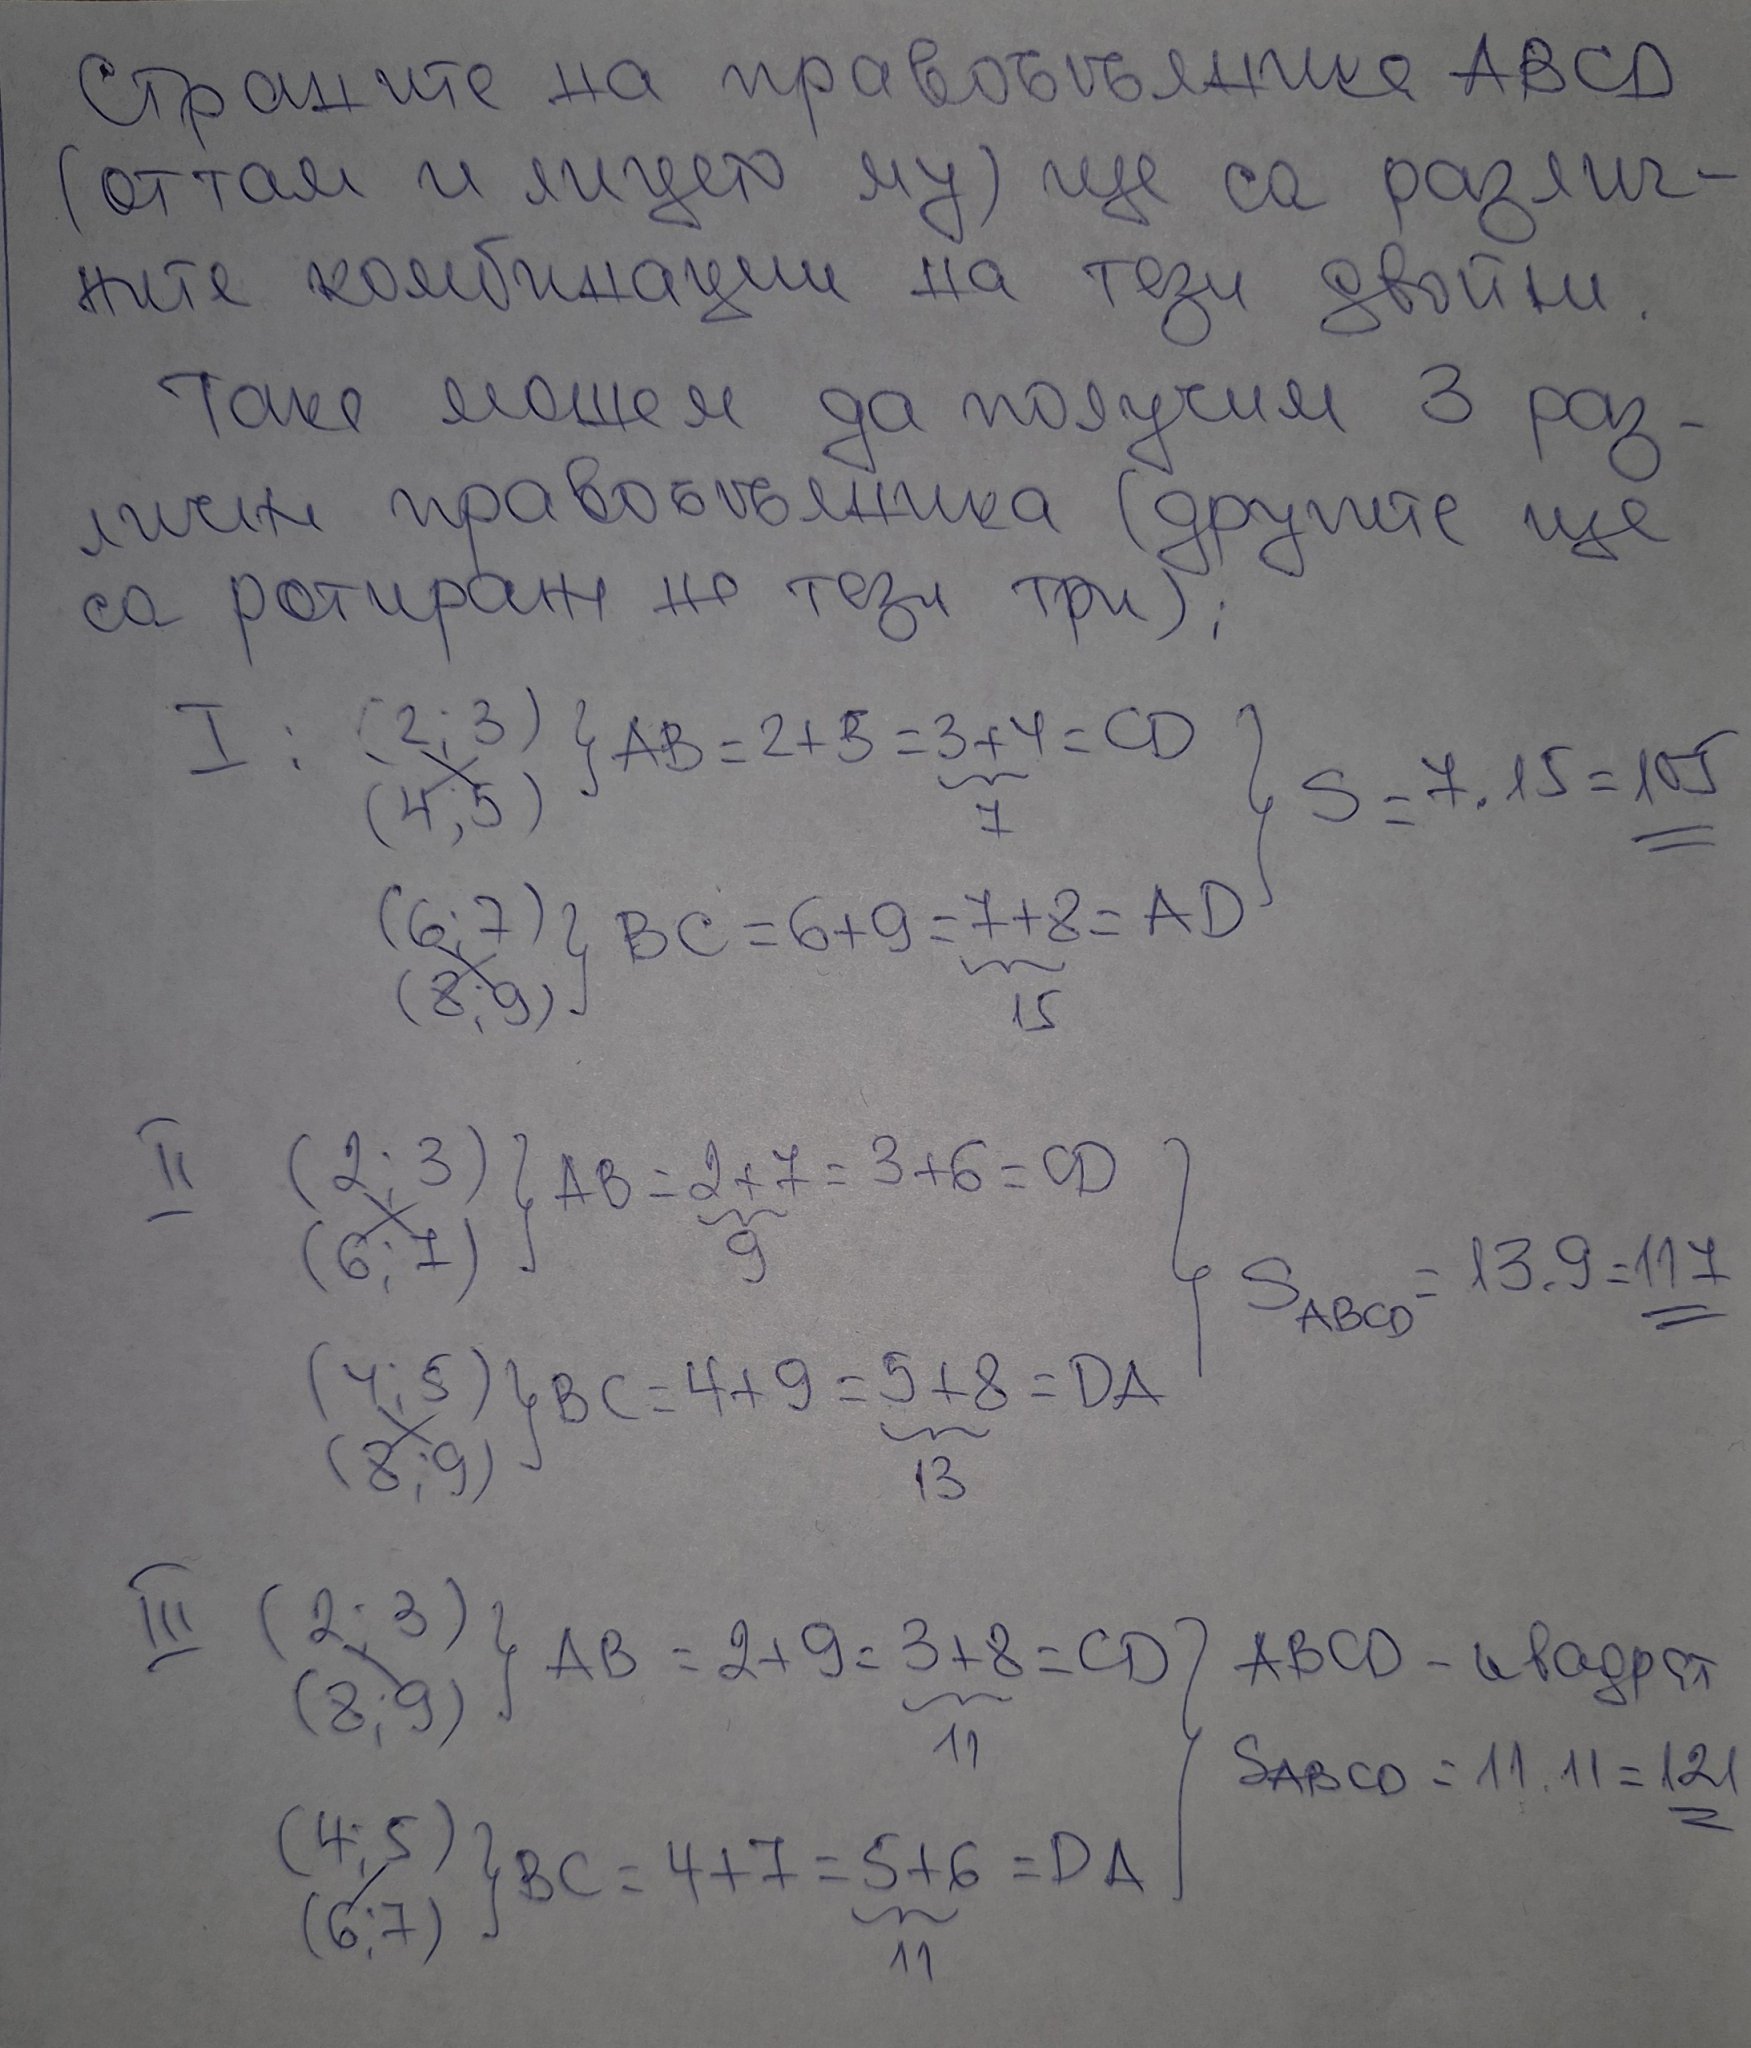 Страните на правоъгълника ABCD
(оттам и лицето му) ще са различ-
ните комбинации на тези двойки.
Така можем да получим 3 раз-
лични правоъгълника (другите ще
са ротирани на тези три):
I : (2; 3) } AB = 2+5 = 3+4 = CD
(4; 5) 7
S = 7.15 = 105
(6; 7) } BC = 6+9 = 7+8 = AD
(8; 9) 15
II (2; 3) } AB = 2+7 = 3+6 = CD
(6; 7) 9
S ABCD = 13.9 = 117
(4; 5) } BC = 4+9 = 5+8 = DA
(8; 9) 13
III (2; 3) } AB = 2+9 = 3+8 = CD } ABCD - квадрат
(8; 9) 11
SABCD = 11.11 = 121
(4; 5) } BC = 4+7 = 5+6 = DA
(6; 7) 11